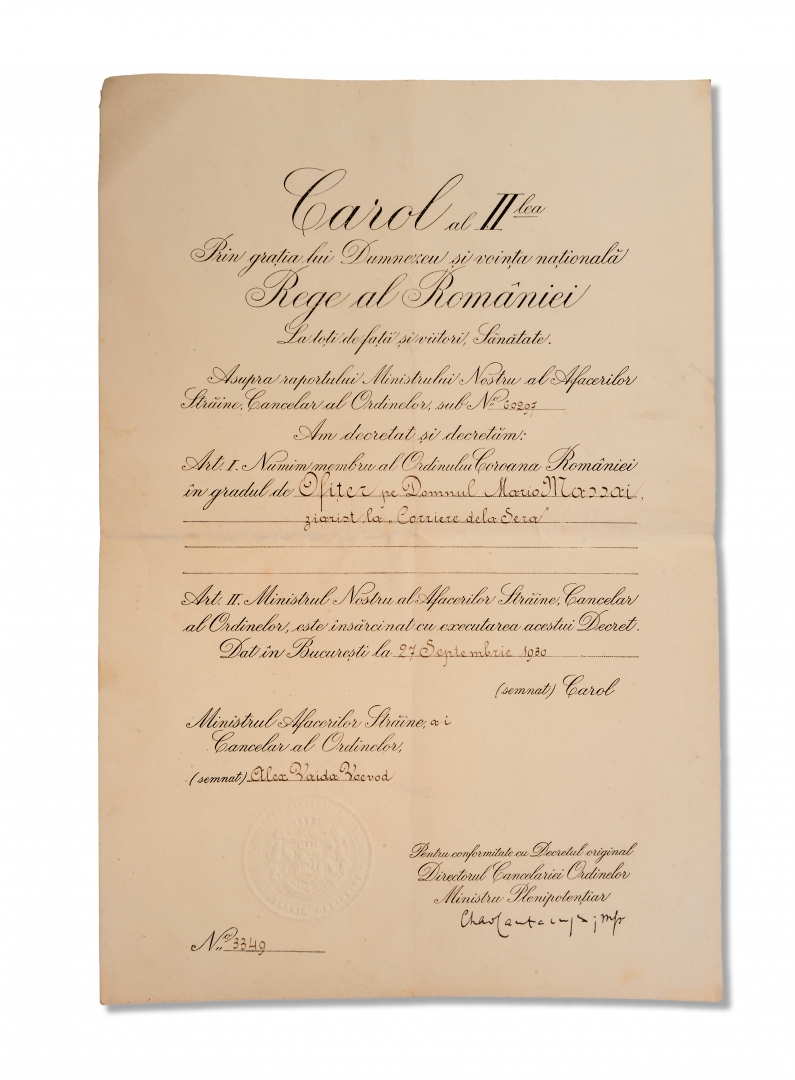 Carol al II lea
Prin grația lui Dumnezeu și voința națională
Rege al României
La toți de față și viitori, Sănătate.
Asupra raportului Ministrului Nostru al Afacerilor
Străine, Cancelar al Ordinelor, sub No. 60297
Am decretat și decretăm:
Art. I. Numim membru al Ordinului Coroana României
în gradul de Ofițer pe Domnul Mario Massai,
ziarist la „Corriere dela Sera”
Art. II. Ministrul Nostru al Afacerilor Străine, Cancelar
al Ordinelor, este însărcinat cu executarea acestui Decret.
Dat în București la 27 Septembrie 1930
(semnat) Carol
Ministrul Afacerilor Străine, a i
Cancelar al Ordinelor,
(semnat) Alex Vaida Voevod
Pentru conformitate cu Decretul original
Directorul Cancelariei Ordinelor
Ministru Plenipotențiar
No. 3349